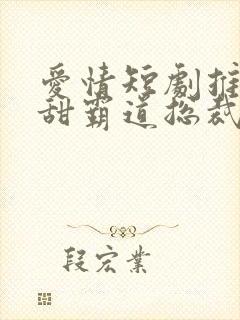 愛情短劇推
甜霸道总裁
段宏業